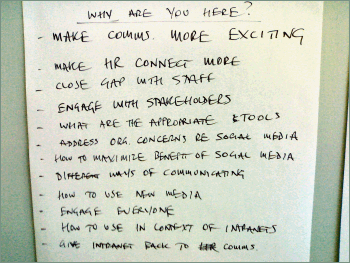 WHY ARE YOU HERE?
- MAKE COMMS. MORE EXCITING
- MAKE HR CONNECT MORE
- CLOSE GAP WITH STAFF
- ENGAGE WITH STAKEHOLDERS
- WHAT ARE THE APPROPRIATE & TOOLS
- ADDRESS ORG. CONCERNS RE SOCIAL MEDIA
- HOW TO MAXIMIZE BENEFIT OF SOCIAL MEDIA
- DIFFERENT WAYS OF COMMUNICATING
- HOW TO USE NEW MEDIA
- ENGAGE EVERYONE
- HOW TO USE IN CONTEXT OF INTRANETS
- GIVE INTRANET BACK TO HR COMMS.